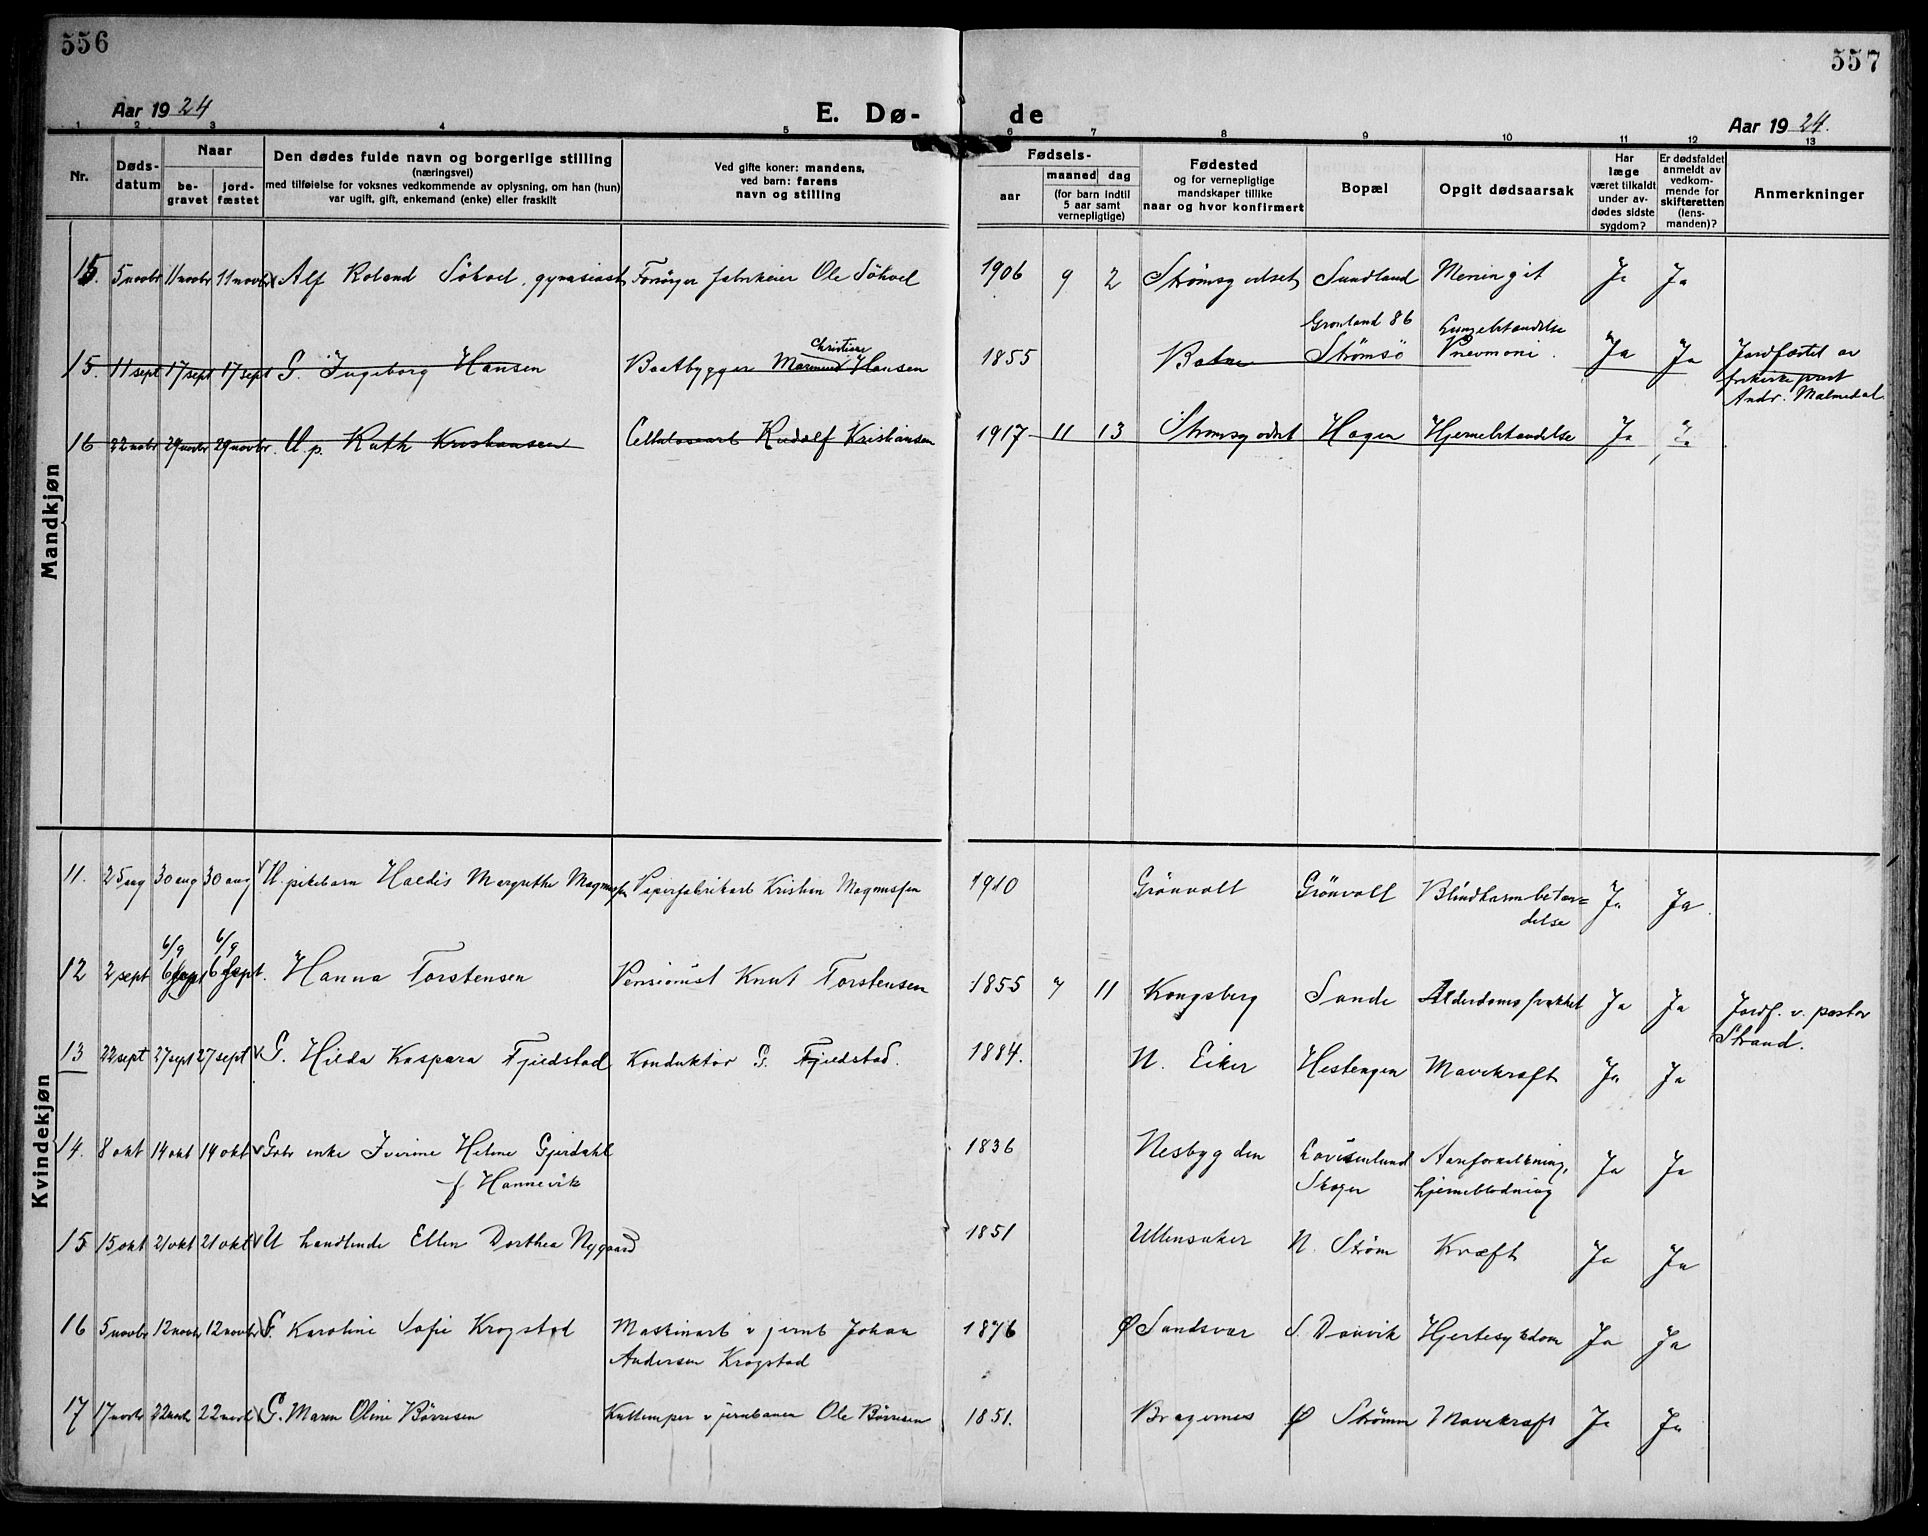 556
557
Aar 1924
E. Dø-
de
Aar 1924.
1 2 3 4 5 6 7 8 9 10 11 12 13
Nr.
Døds-
datum
Naar
be-
gravet
jord-
fæstet
Den dødes fulde navn og borgerlige stilling
(næringsvei)
med tilføielse for voksnes vedkommende av oplysning, om han (hun)
var ugift, gift, enkemand (enke) eller fraskilt
Ved gifte koner: mandens,
ved barn: farens
navn og stilling
Fødsels-
aar
maaned dag
(for barn indtil
5 aar samt
vernepligtige)
Fødested
og for vernepligtige
mandskaper tillike
naar og hvor konfirmert
Bopæl
Opgit dødsaarsak
Har
læge
været tilkaldt
under av-
dødes sidste
sygdom?
Er dødsfaldet
anmeldt av
vedkom-
mende for
skifteretten
(lens-
manden)?
Anmerkninger
Mandkjøn
15. 5 novbr 11 novbr 11 novbr Alf Roland Sökvel, gymnasiast Forsörger fabrikeier Ole Sökvel 1906 9 2 Strømsgodset Sundland Meningit Ja Ja
Christiere Grønland 86 Lungebetændelse
15. 11 sept 17 sept 17 sept G. Ingeborg Hansen Baatbygger Hansen 1855 Strømsö Pnevmoni. Ja Ja Jordfæstet av
frikirkeprest
Andr. Malmedal
16 22 novbr 29 novbr 29 novbr. U. p. Ruth Kristiansen Cellulosearb Rudolf Kristiansen 1917 11 13 Strømsgodset Hagen Hjernebetændelse Ja Ja
Kvindekjøn
11. 25 aug 30 aug 30 aug U. pikebarn Haldis Margrethe Magnussen Papirfabrikarb Kristian Magnussen 1910 Grönvolt Grönvolt Blindtarmbetæn=
delse Ja Ja.
6/9 6/9
12 2 sept 6 sept 6 sept. Hanna Torstensen Pensionist Knut Torstensen 1855 7 11 Kongsberg Sande Alderdomssvakhet Ja Ja Jordf. v. pastor
Strand.
13 22 sept 27 sept 27 sept G. Hilda Kaspara Fjeldstad Konduktör G. Fjeldstad. 1884. N. Eiker Hestengen Mavekræft Ja Ja
14. 8 okt 14 okt 14 okt enke Iverine Helene Gjerdahl
f Hannevik 1836 Nesbygden Lovisenlund
Skoger Aareforkalkning,
hjerneblødning Ja Ja
15 15 okt 21 okt 21 okt U handlende Ellen Dorthea Nygaard 1851 Ullensaker N. Strøm Kræft Ja Ja
16 5 novbr 12 novbr 12 novbr G. Karoline Sofie Krogstad Maskinarb v jernb Johan
Andersen Krogstad 1876 Ø Sandsvær S. Danvik Hjertesykdom Ja Ja
17 17 novbr 22 novbr 22 novbr G. Maren Oline Børresen Kullemper v jernbanen Ole Børresen 1851. Bragernes Ø Strømm Mavekræft Ja Ja